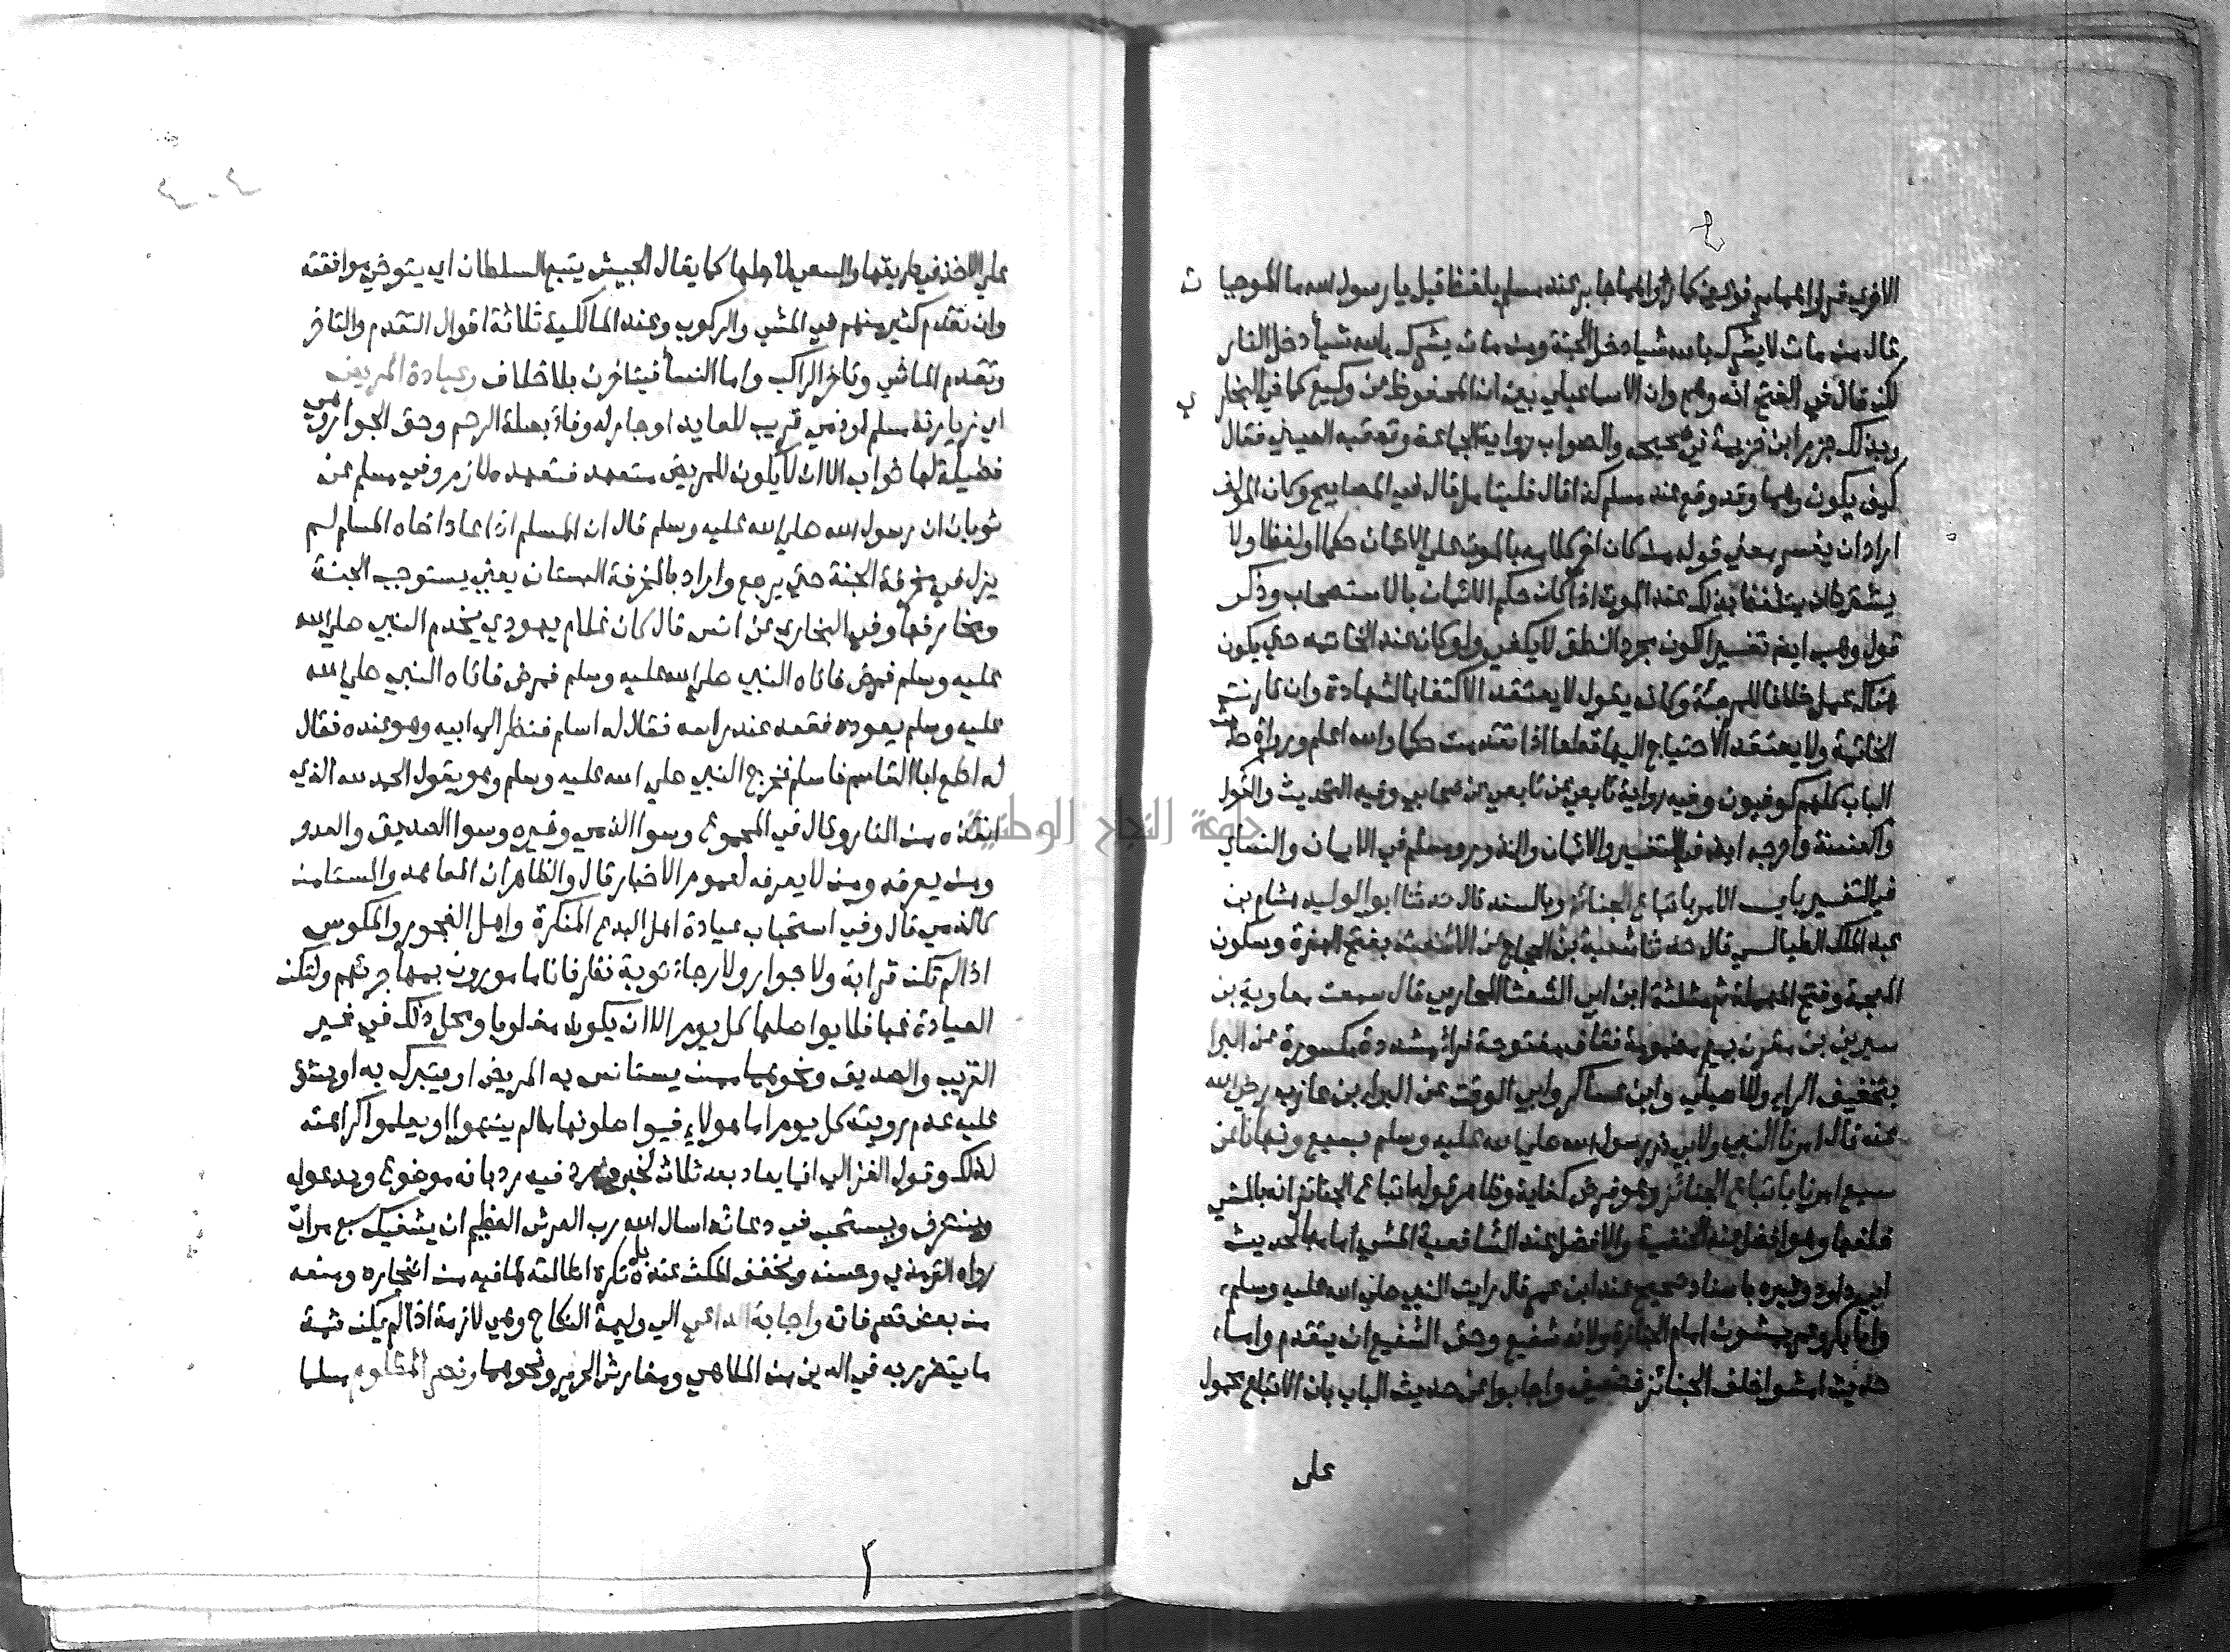 الاخري قبر لوايهما مرفوعين كما رواهما جابر عند مسلم بلفظ قيل يا رسول الله ما الموجبات
قال من مات لا يشرك بالله شيا دخل الجنة ومن مات يشرك بالله شيأ دخل النار
لكن قال في الفتح انه وهم وان الاسماعيلي بين ان المحفوظ عن وكيع كما في البخاري
وبذلك جزم ابن خزيمة في صحيحه والصواب رواية الجماعة وتعقبه العيني فقال
كيف يكون وهما وقد وقع عند مسلم كذا قال فليتامل قال في المصابيح وكان المولف
اراد ان يفسر معني قوله من كان اخر كلامه بالموت علي الايمان حكما او لفظا ولا
يشترط ان يتلفظ بذلك عند الموت اذا كان حكم الايمان بالاستصحاب وذكر
قول وهب ايضا تفسيرا لكون مجرد النطق لا يكفي ولو كان عند الخاتمه حتي يكون
هناك عمل خلافا للمرجئة وكانه يقول لا يعتقد الاكتفا بالشهادة وان قارنت
الخاتمة ولا يعتقد الاحتياج اليها قطعا اذا تقدمت حكما والله اعلم ورواة حديث
الباب كلهم كوفيون وفيه رواية تابعي عن تابعي عن صحابي وفيه التحديث والقول
والعنعنة واخرجه ايضا في التفسير والايمان والنذور ومسلم في الايمان والنساي
في التفسير باب الامر باتباع الجنائز وبالسند قال حدثنا ابو الوليد هشام بن
عبد الملك الطيالسي قال حدثنا شعبة بن الحجاج عن الاشعث بفتح الهمزة وسكون
المعجمة وفتح المهملة ثم مثلثة ابن ابي الشعثا المحاربي قال سمعت معاوية بن
سويد بن مقرن بميم مضمومة فقاف مفتوحة فراء مشددة مكسورة عن البرا
بتخفيف الراء وللاصيلي وابن عساكر وابي الوقت عن البراء بن عازب رضي الله
عنه قال امرنا النبي ولابي ذر رسول الله صلي الله عليه وسلم بسبع ونهانا عن
سبع امرنا باتباع الجنائز وهو فرض كفاية وظاهر قوله اتباع الجنائز انه بالمشي
خلفها وهو افضل عند الحنفية والافضل عند الشافعية المشي امامها لحديث
ابي داود وغيره باسناد صحيح عند ابن عمر قال رايت النبي صلي الله عليه وسلم
وابا بكر وعمر يمشون امام الجنازة ولانه شفيع وحق الشفيع ان يتقدم واما
حديث امشوا خلف الجنائز فضعيف واجابوا عن حديث الباب بان الاتباع محمول
علي
علي الاخذ في طريقها والسعي لاجلها كما يقال الجيش يتبع السلطان اي يتوخي موافقته
وان تقدم كثير منهم في المشي والركوب وعند المالكية ثلاثة اقوال التقدم والتاخر
وتقدم الماشي وتاخر الراكب واما النسأ فيتاخرن بلا خلاف وعيادة المريض
اي زيارته مسلم او ذمي قريب للعايد او جار له وفاءً بصلة الرحم وحق الجوار وهي
فضيلة لها ثواب الا ان لا يكون للمريض متعهد فتعهده لازم وفي مسلم عن
ثوبان ان رسول الله صلي الله عليه وسلم قال ان المسلم اذا عاد اخاه المسلم لم
يزل في مخرفة الجنة حتي يرجع واراد بالمخرفة البستان يعني يستوجب الجنة
ومخارفها وفي البخاري عن انس قال كان غلام يهودي يخدم النبي صلي الله
عليه وسلم فمرض فاتاه النبي صلي الله عليه وسلم فمرض فاتاه النبي صلي الله
عليه وسلم يعوده فقعد عند راسه فقال له اسلم فنظر الي ابيه وهو عنده فقال
له اطع ابا القاسم فاسلم فخرج النبي صلي الله عليه وسلم وهو يقول الحمد لله الذي
انقذه من النار وقال في المجموع وسوا الذمي وغيره وسوا الصديق والعدو
ومن يعرفه ومن لا يعرفه لعموم الاخبار قال والظاهر ان المعاهد والمستامن
كالذمي قال وفي استحباب عيادة اهل البدع المنكرة واهل الفجور والمكوس
اذا لم تكن قرابة ولا جوار ولا رجاء توبة نظر فانا مامورون بمهاجرتهم ولتكن
العيادة غبا فلا يواصلها كل يوم الا ان يكون مغلوبا ومحل ذلك في غير
القريب والصديق ونحوهما ممن يستانس به المريض او يتبرك به او يشق
عليه عدم رويته كل يوم اما هولاء فيواصلونها ما لم ينتهوا او يعلموا كراهته
لذلك وقول الغزالي انما يعاد بعد ثلاث لخبر ورد فيه رد بانه موضوع ويدعو له
وينصرف ويستحب في دعائه اسال الله رب العرش العظيم ان يشفيك سبع مرات
رواه الترمذي وحسنه ويخفف المكث عنده بل تكره اطالته لما فيه من اضجاره ومنعه
من بعض تصرفاته واجابة الداعي الي وليمة النكاح وهي لازمة اذا لم يكن ثمة
ما يتضرر به في الدين من الملاهي ومفارش الحرير ونحوهما ونصر المظلوم مسلما
٢
جامعة النجاح الوطنية